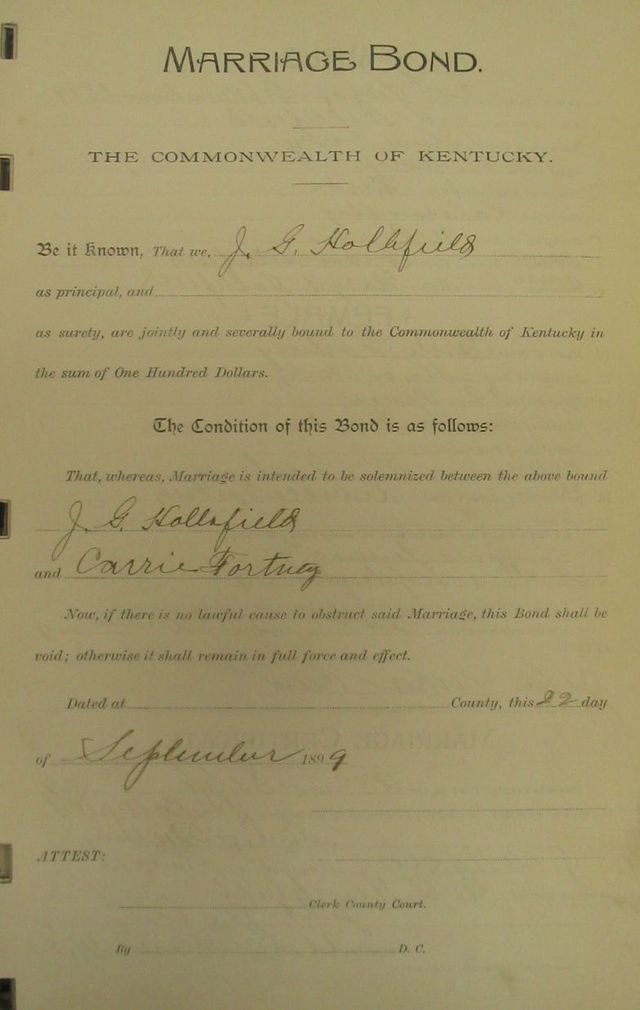 MARRIAGE BOND.
THE COMMONWEALTH OF KENTUCKY.
Be it Known, That we, J. G. Hollifield
as principal, and
as surety, are jointly and severally bound to the Commonwealth of Kentucky in
the sum of One Hundred Dollars.
The Condition of this Bond is as follows:
That, whereas, Marriage is intended to be solemnized between the above bound
J. G. Hollifield
and Carrie Fortney
Now, if there is no lawful cause to obstruct said Marriage, this Bond shall be
void; otherwise it shall remain in full force and effect.
Dated at County, this 22 day
of September 1899
ATTEST:
Clerk County Court.
By D. C.